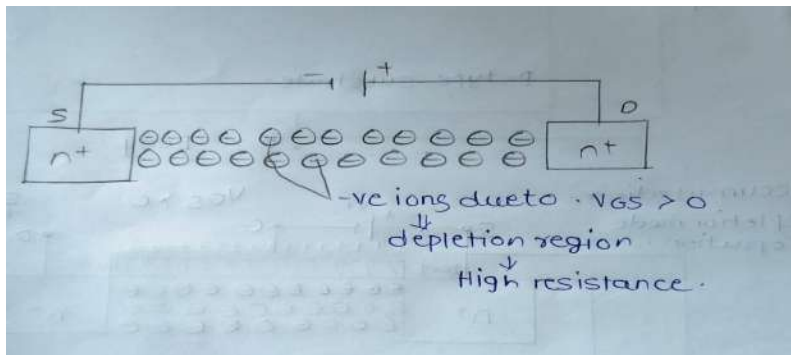 - +
S D
n+ n+
-ve ions due to . VGS > 0
⇓
depletion region
↓
High resistance.